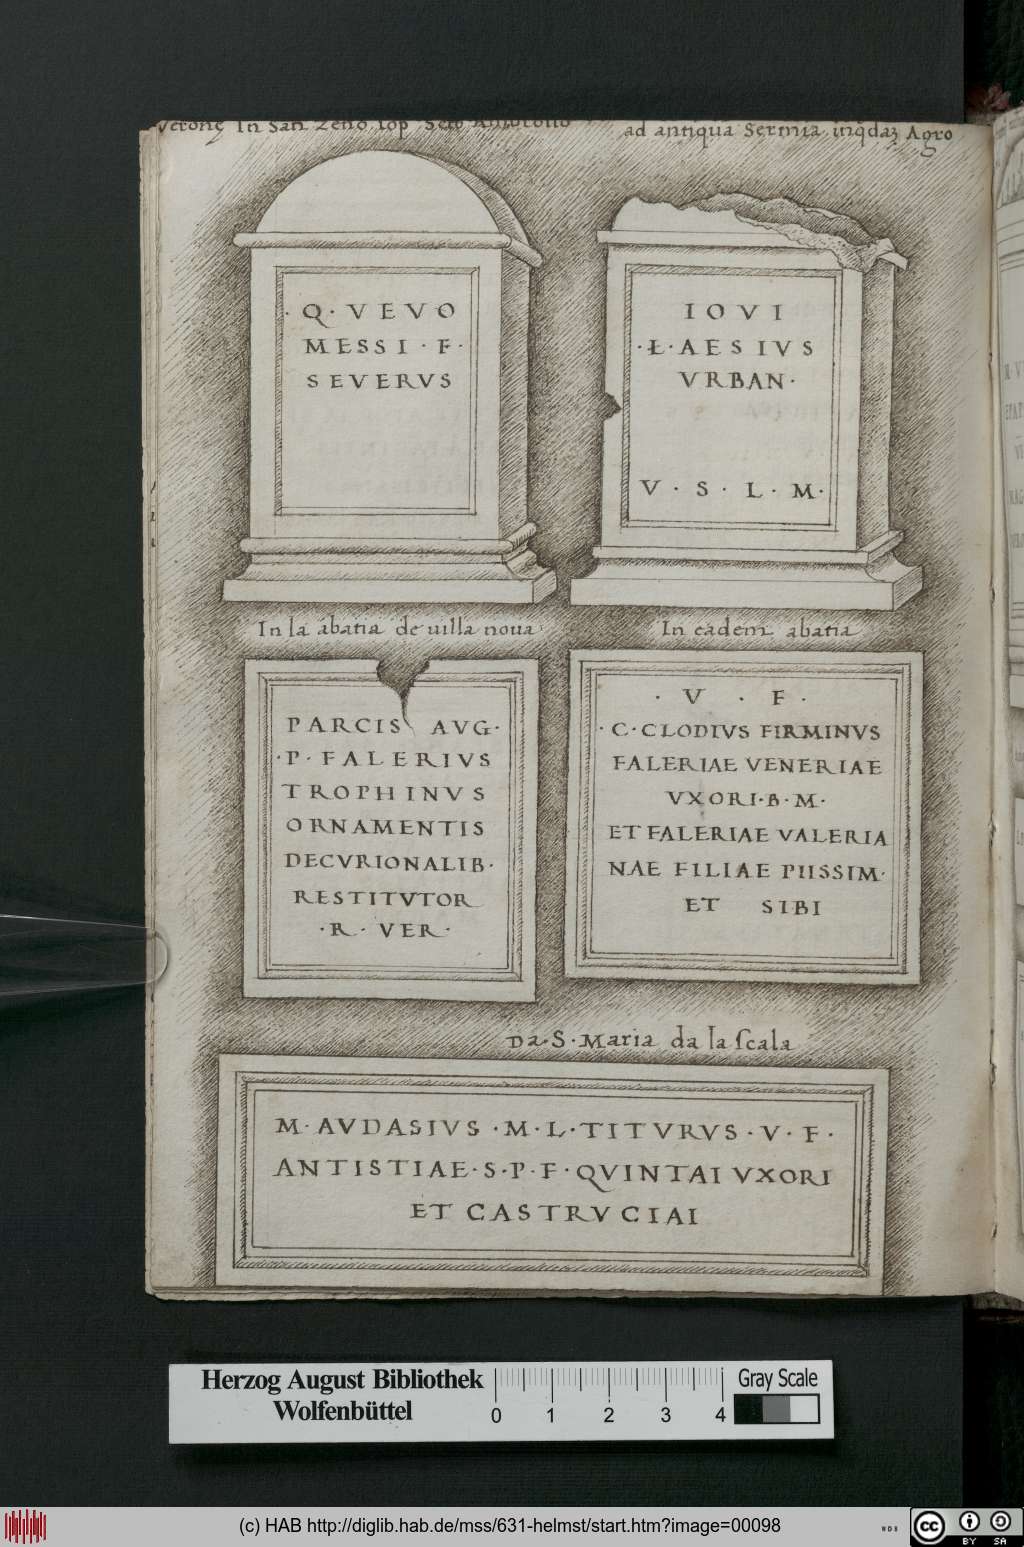 Veronę In San Zeno
ad antiqua Sermia, inqdaʒ Agro
· Q · VEVO
MESSI · F ·
SEVERVS
IOVI
· L · AESIVS
VRBAN ·
V · S · L · M ·
In la abatia de uilla noua
In eadem abatia
PARCIS AVG ·
· P · FALERIVS
TROPHINVS
ORNAMENTIS
DECVRIONALIB ·
RESTITVTOR
· R · VER ·
· V · F ·
· C · CLODIVS FIRMINVS
FALERIAE VENERIAE
VXORI · B · M ·
ET FALERIAE VALERIA
NAE FILIAE PIISSIM ·
ET SIBI
Da · S · Maria da la scala
M · AVDASIVS · M · L · TITVRVS · V · F ·
ANTISTIAE · S · P · F · QVINTAI VXORI
ET CASTRVCIAI
Herzog August Bibliothek
Wolfenbüttel
0 1 2 3 4
Gray Scale
(c) HAB http://diglib.hab.de/mss/631-helmst/start.htm?image=00098
WDB
cc BY SA